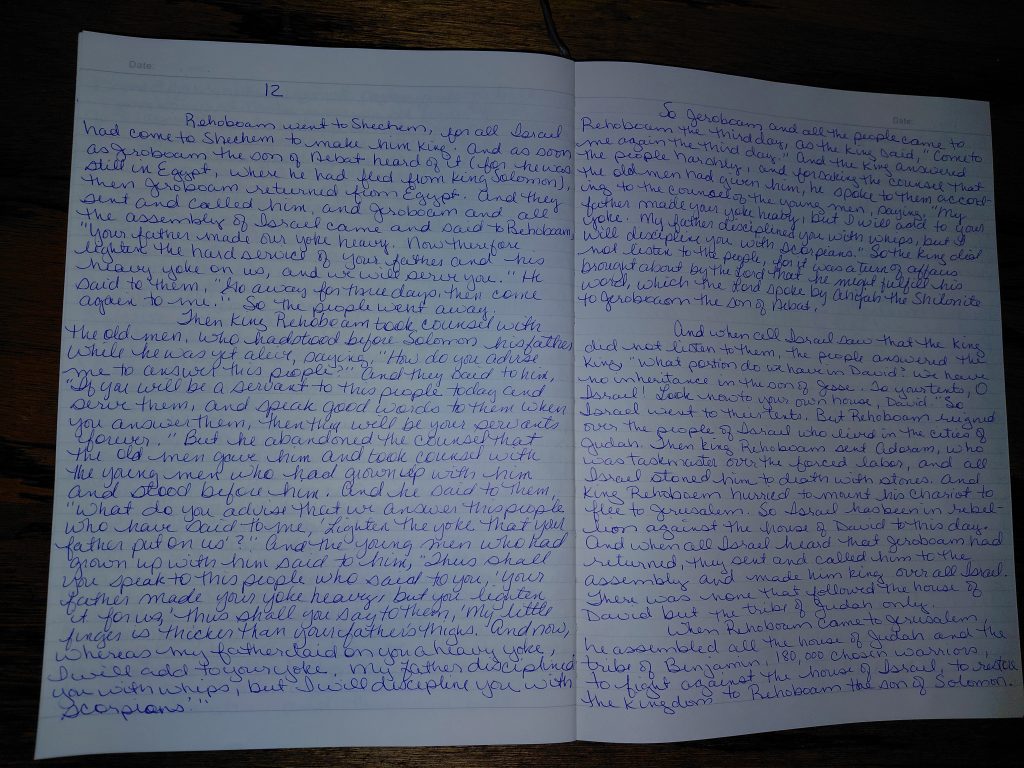 Date:
12
Rehoboam went to Shechem, for all Israel
had come to Shechem to make him king. And as soon
as Jeroboam the son of Nebat heard of it (for he was
still in Egypt, where he had fled from King Solomon),
then Jeroboam returned from Egypt. And they
sent and called him, and Jeroboam and all
the assembly of Israel came and said to Rehoboam,
"Your father made our yoke heavy. Now therefore
lighten the hard service of your father and his
heavy yoke on us, and we will serve you." He
said to them, "Go away for three days, then come
again to me." So the people went away.
Then King Rehoboam took counsel with
the old men, who had stood before Solomon his father
while he was yet alive, saying, "How do you advise
me to answer this people?" And they said to him,
"If you will be a servant to this people today and
serve them, and speak good words to them when
you answer them, then they will be your servants
forever." But he abandoned the counsel that
the old men gave him and took counsel with
the young men who had grown up with him
and stood before him. And he said to them,
"What do you advise that we answer this people
who have said to me, 'Lighten the yoke that your
father put on us'?" And the young men who had
grown up with him said to him, "Thus shall
you speak to this people who said to you, 'Your
father made your yoke heavy, but you lighten
it for us,' thus shall you say to them, 'My little
finger is thicker than your father's thighs. And now,
whereas my father laid on you a heavy yoke,
I will add to your yoke. My father disciplined
you with whips, but I will discipline you with
scorpions.'"
Date:
So Jeroboam and all the people came to
Rehoboam the third day, as the king said, "Come to
me again the third day." And the king answered
the people harshly, and forsaking the counsel that
the old men had given him, he spoke to them accord-
ing to the counsel of the young men, saying, "My
father made your yoke heavy, but I will add to your
yoke. My father disciplines you with whips, but I
will discipline you with scorpions." So the king did
not listen to the people, for it was a turn of affairs
brought about by the Lord that he might fulfill his
word, which the Lord spoke by Ahijah the Shilonite
to Jeroboam the son of Nebat.
And when all Israel saw that the king
did not listen to them, the people answered the
king, "What portion do we have in David? We have
no inheritance in the son of Jesse. So your tents, O
Israel! Look now to your own house, David." So
Israel went to their tents. But Rehoboam reigned
over the people of Israel who lived in the cities of
Judah. Then King Rehoboam sent Adoram, who
was taskmaster over the forced labor, and all
Israel stoned him to death with stones. And
King Rehoboam hurried to mount his chariot to
flee to Jerusalem. So Israel has been in rebel-
lion against the house of David to this day.
And when all Israel heard that Jeroboam had
returned, they sent and called him to the
assembly and made him king over all Israel.
There was none that followed the house of
David but the tribe of Judah only.
When Rehoboam came to Jerusalem,
he assembled all the house of Judah and the
tribe of Benjamin, 180,000 chosen warriors,
to fight against the house of Israel, to restore
the kingdom to Rehoboam the son of Solomon.